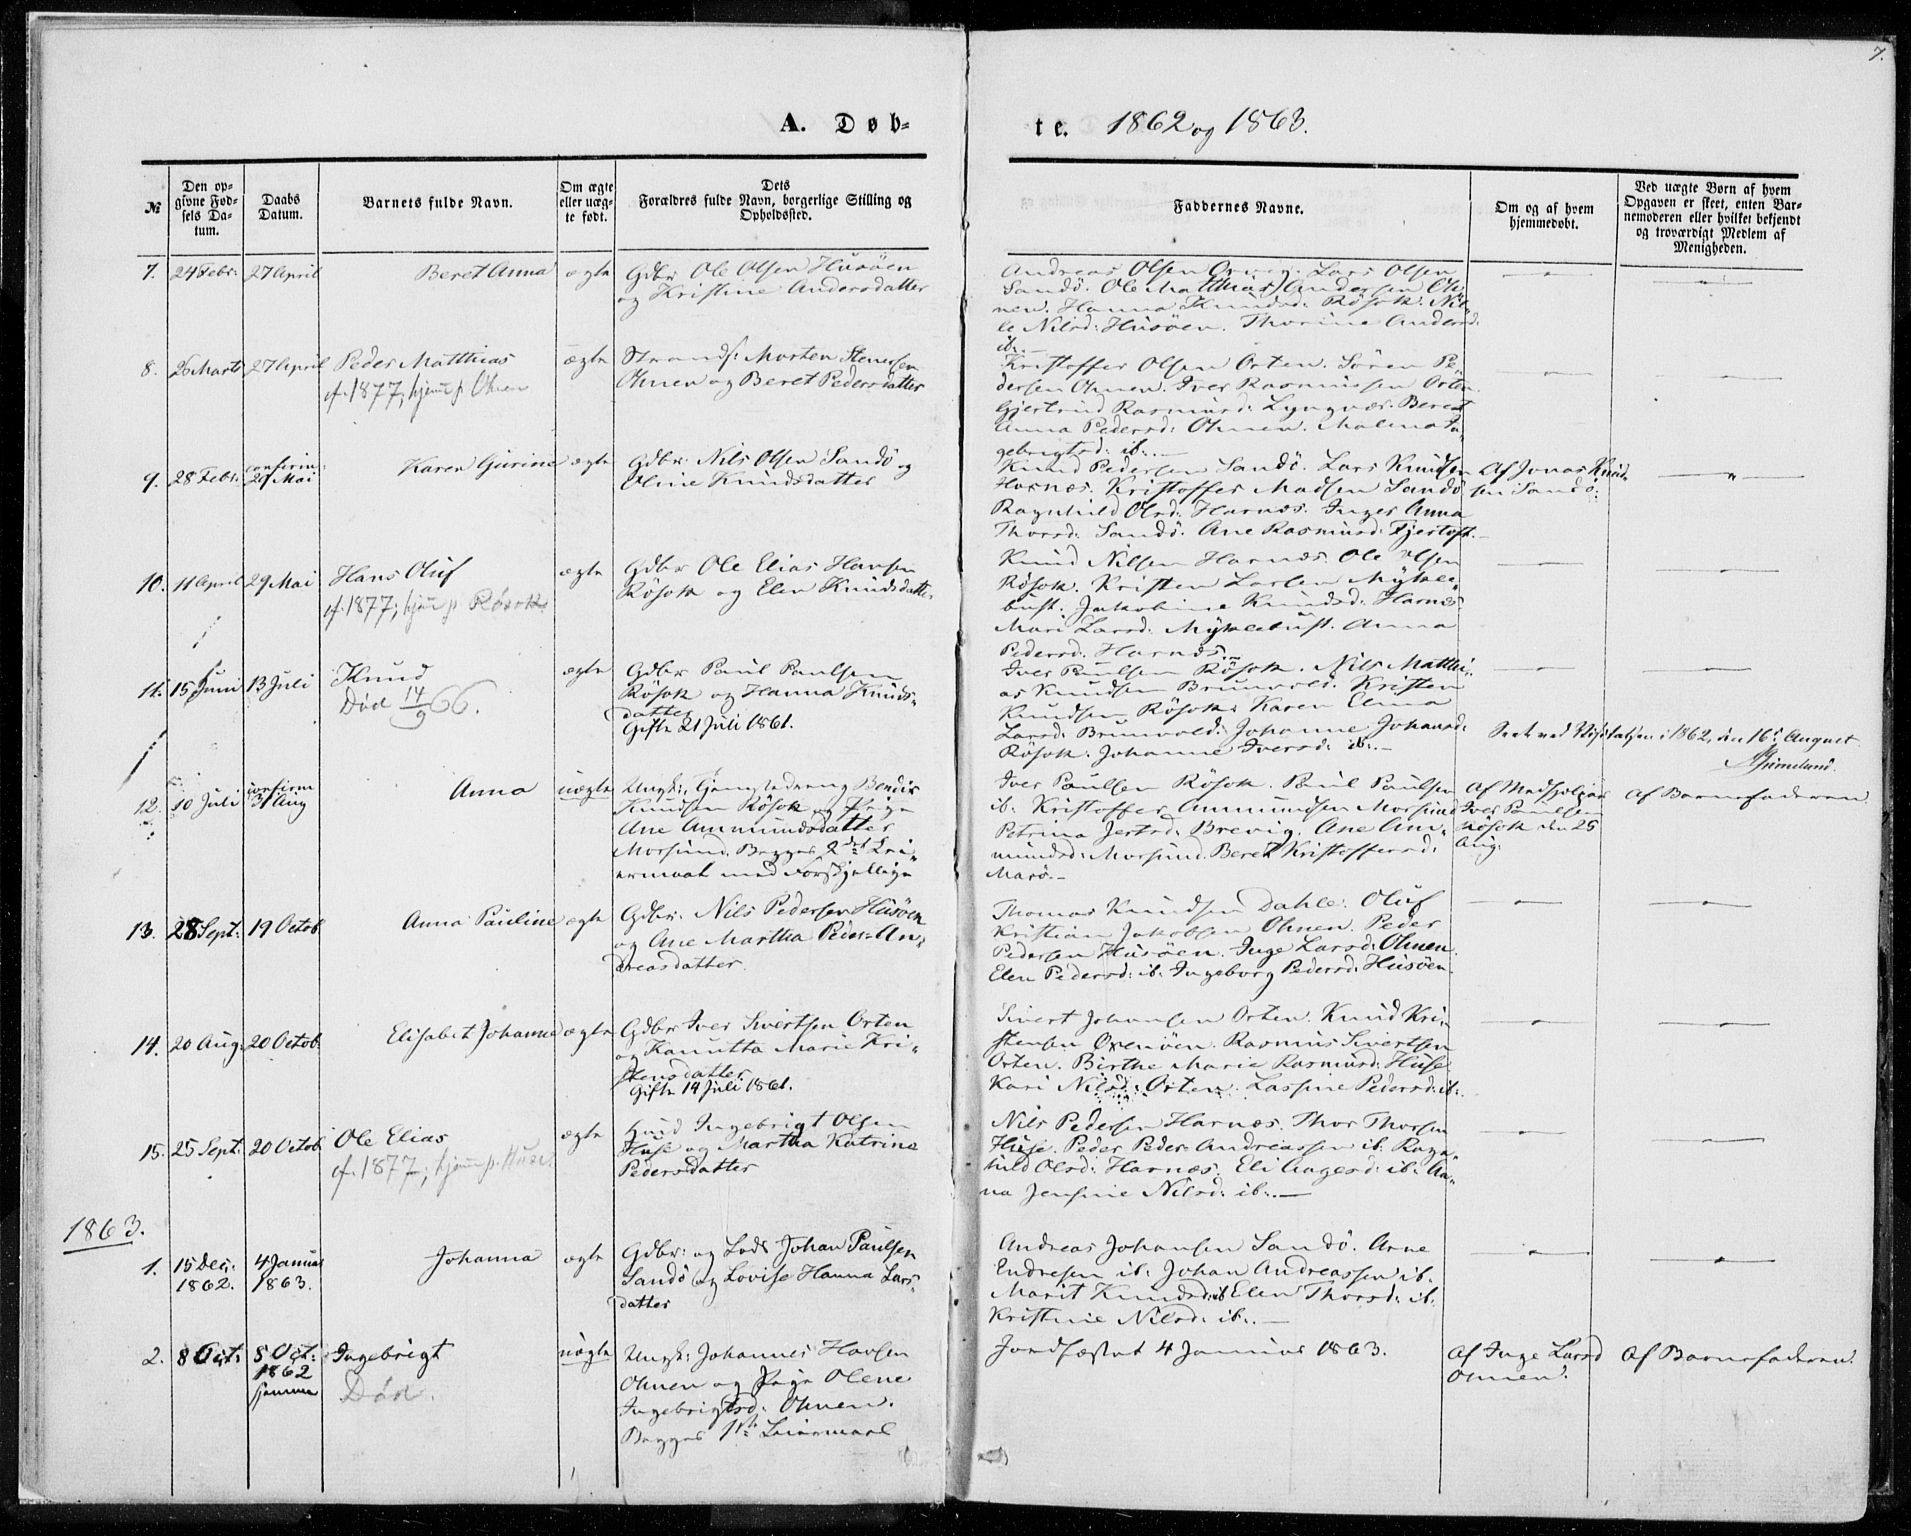 7.
A. Døb-
te. 1862 og 1863.
№
Den op-
givne Fød-
sels Da-
tum.
Daabs
Datum.
Barnets fulde Navn.
Om ægte
eller uæg-
te født.
Dets
Forældres fulde Navn, borgerlige Stilling og
Opholdssted.
Faddernes Navne.
Om og af hvem
hjemmedøbt.
Ved uægte Børn af hvem
Opgaven er skeet, enten Bar-
nemoderen eller hvilket bekjendt
og troværdigt Medlem af
Menigheden.
7. 24 Febr: 27 April Beret Anna ægte
Gdbr Ole Olsen Husøen
og Kristine Andersdatter
Andreas Olsen Lars Olsen
Sandö. Ole Matthias Andersen Oh-
nen. Hanna Knudsd: Rösok. Nil-
le Nilsd: Husöen. Thorine Andersd:
ib:.—
8. 26 Marts 27 April Peder Matthias ægte
cf. 1877; hjem p. Ohnen
Strands: Morten Stenersen
Ohnen og Beret Pedersdatter
Kristoffer Olsen Orten. Sören Pe-
dersen Ohnen. Iver Rasmussen Orten
Gjertrud Rasmusd: Lyngvær. Beret
Anna Pedersd: Ohnen. Malena In-
gebrigtsd: ib:.—
9. 28 Febr: confirm: 29 Mai Karen Gurine ægte
Gdbr: Nils Olsen Sandö og
Oline Knudsdatter
Knud Pedersen Sandö. Lars Knudsen
Harnæs. Kristoffer Madsen Sandö
Ragnhild Olsd: Harnæs. Inger Anna
Thorsd: Sandö. Ane Rasmusd: Fjertoft.—
Af Jonas Knud-
sen Sandö:
10. 11 April 29 Mai Hans Oluf ægte
cf. 1877; hjem p. Røsok
Gdbr Ole Elias Hansen
Rösok og Elen Knudsdatter
Knud Nilsen Harnæs. Ole Olsen
Rösok. Kristen Larsen Mykle-
bust. Jakobine Knudsd: Harnæs
Mari Larsd: Myklebust. Anna
Pedersd: Harnæs.—
11. 15 Juni 13 Juli Knud ægte
Død 14/9 66.
Gdbr Paul Paulsen
Rösok og Hanna Knuds-
datter
Gifte 21 Juli 1861.
Iver Paulsen Rösok. Nils Matthi-
as Knudsen Brunvold. Kristen
Knudsen Rösok. Karen Elina
Larsd: Brunvold. Johanne Johansd:
Rösok. Johanne Iversd: ib:.—
Seet ved Visitatsen i 1862, den 16de August
12. 10 Juli confirm 31 Aug Anna uægte
Ungk:, Gjengsledreng Bendix
Knudsen Rösok og Pige
Ane Ammundsdatter
Morsund. Begges 2det Lei-
ermaal med Forskjellige
Iver Paulsen Rösok. Paul Paulsen
ib: Kristoffer Ammundsen Morsund
Petrina Jertsd: Brevig. Ane Am-
mundsd: Morsund. Beret Kristoffersd:
Marö.—
Af Medhjelper
Iver Paulsen
Rösok den 25
Aug:
Af Barnefaderen
13. 28 Sept: 19 Octob Anna Pauline ægte
Gdbr: Nils Pedersen Husöen
og Ane Martha Peder-An-
dreasdatter.
Thomas Knudsen Dahle. Oluf
Kristian Jakobsen Ohnen. Peder
Pedersen Husöen. Inge Larsd: Ohnen
Elen Pedersd: ib: Ingeborg Pedersd: Husöen
14. 20 Aug: 20 Octob: Elisabet Johanne ægte
Gdbr Iver Sivertsen Orten
og Kanutta Marie Kri-
stensdatter
Gifte 14 Juli 1861.
Sivert Johansen Orten. Knud Kri-
stensen Oxenöen. Rasmus Sivertsen
Orten. Birthe Marie Rasmusd: Huse
Kari Nilsd: Orten. Lassine Pedersd: ib:.
15. 25 Sept: 20 Octob Ole Elias ægte
cf. 1877; hjem p. Huse
Husd Ingebrigt Olsen
Huse og Martha Katrine
Pedersdatter
Nils Pedersen Harnæs. Thor Thorsen
Huse. Peder Peder-Andreassen ib: Ragn-
hild Olsd: Harnæs. Eli Aagesd: ib: An-
na Jensine Nilsd: ib:.—
1863.
1. 15 Dec: 1862. 4 Januar 1863. Johanna ægte
Gdbr: og Lods Johan Paulsen
Sandö og Lovise Hanna Lars-
datter
Andreas Johansen Sandö. Arne
Endresen ib: Johan Andreassen ib.
Marit Knudsd: ib Elen Thorsd: ib:
Kristine Nilsd: ib:.—
2. 8 Oct: 8 Oct: 1862 hjemme Ingebrigt uægte
Død.
Ungk: Johannes Havsen
Ohnen og Pige Olene
Ingebrigtsd: Ohnen.
Begges 1ste Leiermaal
Jordfæstet 4 Januar 1863.
Af Inge Larsd
Ohnen.
Af Barnefaderen.